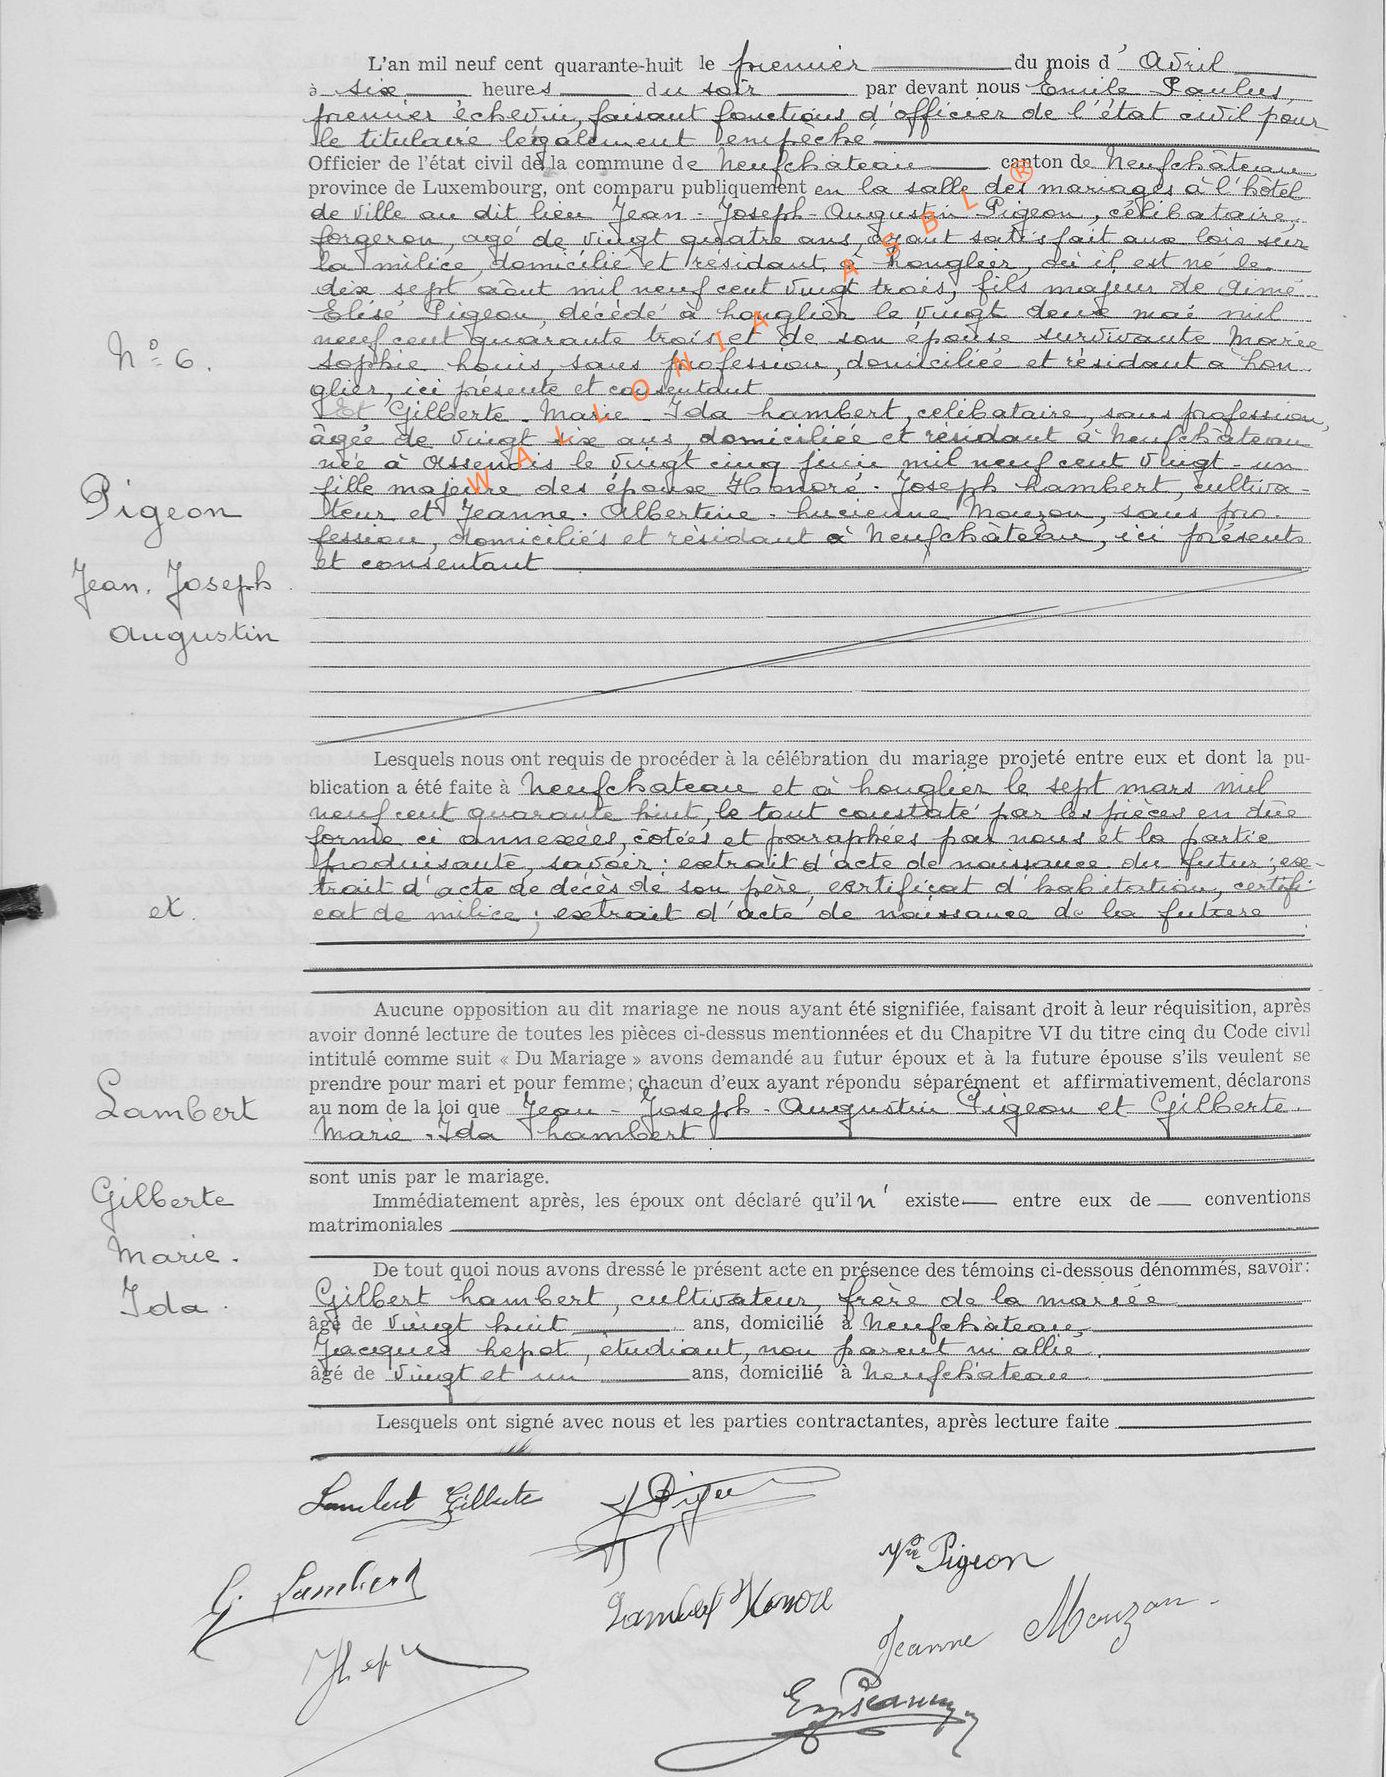 L'an mil neuf cent quarante-huit le premier du mois d' Avril
à six heures du soir par devant nous Emile Paulus,
premier échevin, faisant fonctions d'officier de l'état civil pour
le titulaire légalement empêché
Officier de l'état civil de la commune de Neufchâteau canton de Neufchâteau
province de Luxembourg, ont comparu publiquement en la salle des mariages à l'hôtel
de ville au dit lieu Jean - Joseph - Augustin Pigeon, célibataire,
forgeron, agé de vingt quatre ans, ayant satisfait aux lois sur
la milice, domicilié et résidant à Longlier, où il est né le
dix sept août mil neuf cent vingt trois, fils majeur de Aimé
Elisé Pigeon, décédé à Longlier le vingt deux mai mil
neuf cent quarante trois et de son épouse survivante Marie
Sophie Louis, sans profession, domiciliée et résidant à Lon
glier, ici présente et consentant
Et Gilberte - Marie - Ida Lambert, célibataire, sans profession,
âgée de vingt six ans, domiciliée et résidant à Neufchâteau
née à Assenois le vingt cinq juin mil neuf cent vingt - un
fille majeure des époux Honoré - Joseph Lambert, cultiva-
teur et Jeanne - Albertine - Lucienne Mouzon, sans pro-
fession, domiciliés et résidant à Neufchâteau, ici présents
et consentant
N° 6.
Pigeon
Jean. Joseph
Augustin
Lesquels nous ont requis de procéder à la célébration du mariage projeté entre eux et dont la pu-
blication a été faite à Neufchateau et à Longlier le sept mars mil
neuf cent quarante huit, le tout constaté par les pièces en due
forme ci annexées, cotées et paraphées par nous et la partie
produisante, savoir : extrait d'acte de naissance du futur ; ex-
trait d'acte de décès de son père, certificat d'habitation, certifi
cat de milice ; extrait d'acte de naissance de la future
et.
Aucune opposition au dit mariage ne nous ayant été signifiée, faisant droit à leur réquisition, après
avoir donné lecture de toutes les pièces ci-dessus mentionnées et du Chapitre VI du titre cinq du Code civil
intitulé comme suit « Du Mariage » avons demandé au futur époux et à la future épouse s'ils veulent se
prendre pour mari et pour femme; chacun d'eux ayant répondu séparément et affirmativement, déclarons
au nom de la loi que Jean - Joseph - Augustin Pigeon et Gilberte -
Marie - Ida Lambert
Lambert
Gilberte
Marie.
Ida.
sont unis par le mariage.
Immédiatement après, les époux ont déclaré qu'il n' existe entre eux de conventions
matrimoniales
De tout quoi nous avons dressé le présent acte en présence des témoins ci-dessous dénommés, savoir:
Gilbert Lambert, cultivateur, frère de la mariée
âgé de vingt huit ans, domicilié à Neufchâteau,
Jacques Lepot, étudiant, non parent ni allié.
âgé de vingt et un ans, domicilié à Neufchâteau.
Lesquels ont signé avec nous et les parties contractantes, après lecture faite
Lambert Gilberte
J Pigeon
Vve Pigeon
G. Lambert
Lambert Honoré
Jeanne Mouzon
WALLONIA ASBL ®